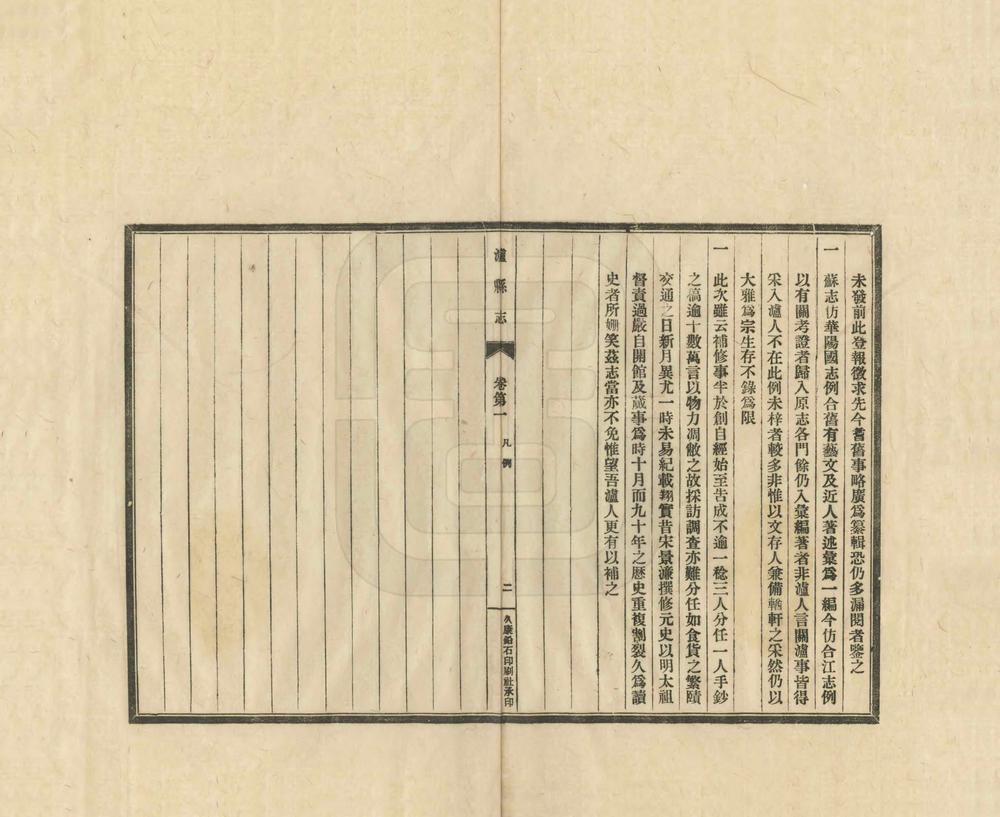 未發前此登報徵求先今耆舊事略廣爲纂輯恐仍多漏閱者鑒之
一　蘇志仿華陽國志例合舊有藝文及近人著述彙爲一編今仿合江志例
以有關考證者歸入原志各門餘仍入彙編著者非瀘人言關瀘事皆得
采入瀘人不在此例未梓者較多非惟以文存人兼備輶軒之采然仍以
大雅爲宗生存不錄爲限
一　此次雖云補修事半於創自經始至告成不逾一稔三人分任一人手鈔
之稿逾十數萬言以物力凋敝之故採訪調查亦難分任如食貨之繁賾
交通之日新月異尤一時未易紀載翔實昔宋景濂撰修元史以明太祖
督責過嚴自開館及蕆事爲時十月而九十年之歷史重複割裂久爲讀
史者所姍笑茲志當亦不免惟望吾瀘人更有以補之
瀘縣志　卷第一　凡例　二　久康鉛石印刷社承印